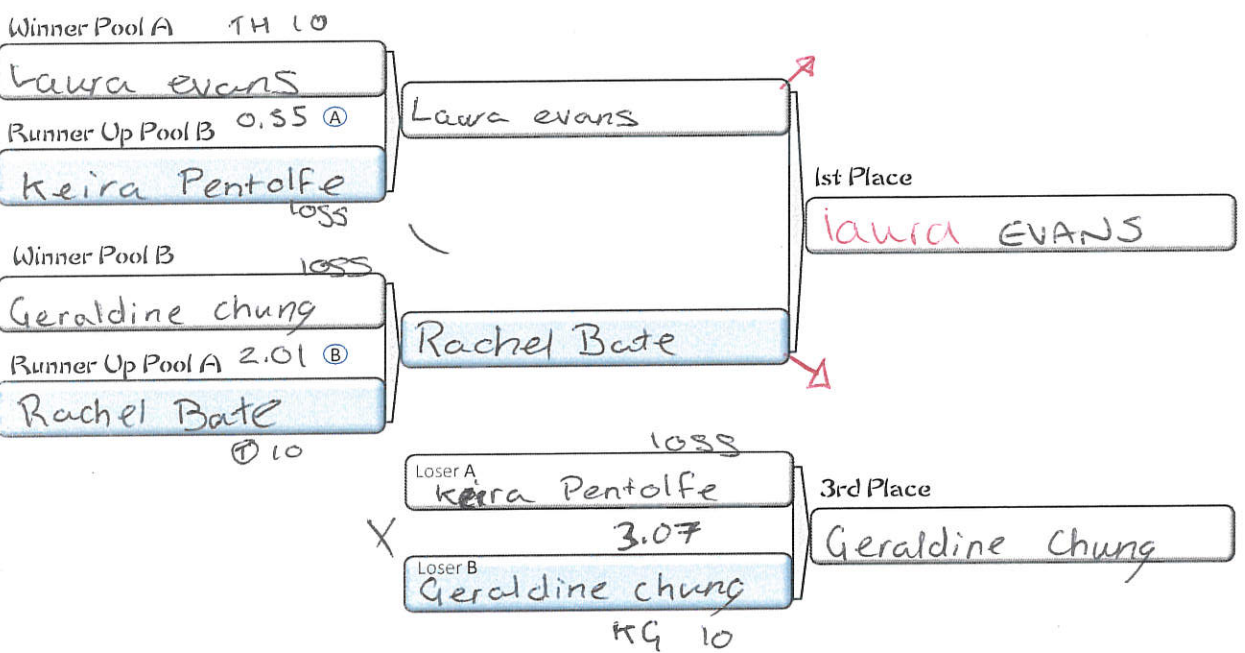 Winner Pool A TH 10
Laura evans
Runner Up Pool B 0.35 A
Keira Pentolfe
loss
Laura evans
Winner Pool B loss
Geraldine chung
Runner Up Pool A 2.01 B
Rachel Bate
T 10
Rachel Bate
1st Place
laura EVANS
loss
Loser A
Keira Pentolfe
3.07
Loser B
Geraldine chung
KG 10
3rd Place
Geraldine Chung